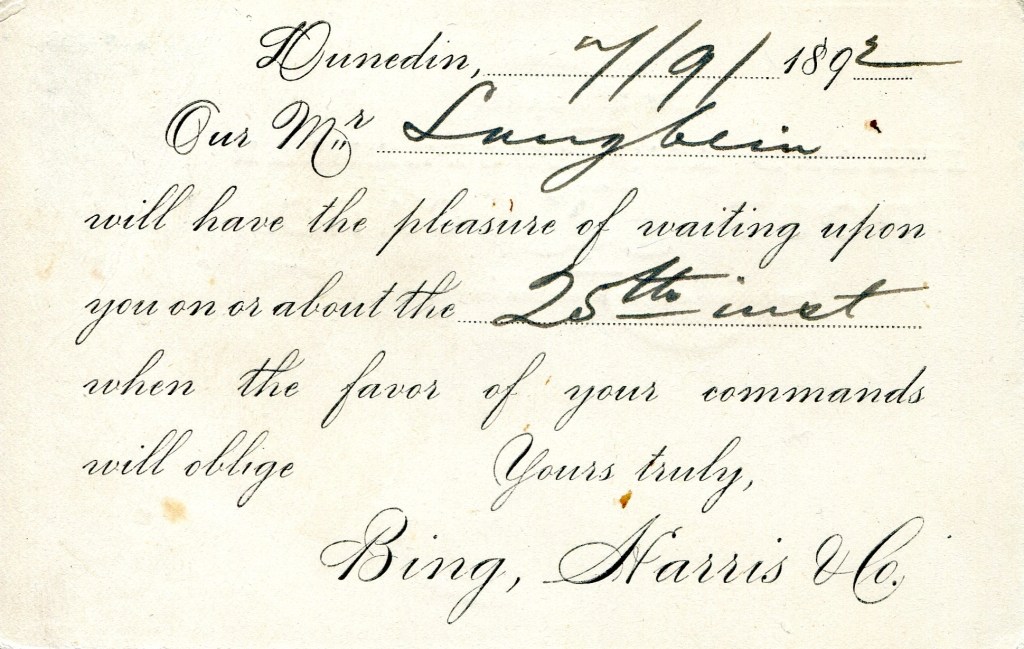 Dunedin, 7/9/ 1892
Our Mr. Langbein
will have the pleasure of waiting upon
you on or about the 25th inst
when the favor of your commands
will oblige Yours truly,
Bing, Harris & Co.